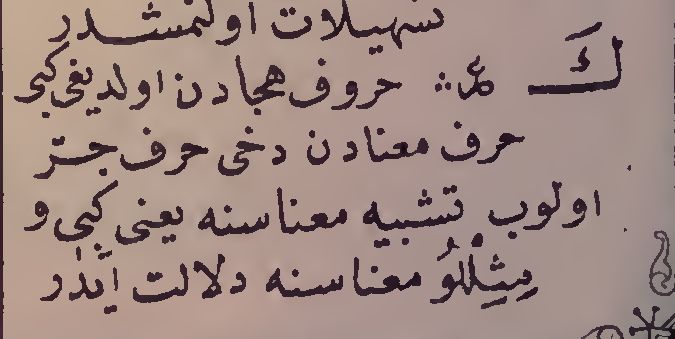 تسهيلات اولنمشدر
كَ ع حروف هجادن اولديغى كبى
حرف معنادن دخى حرف جر
اولوب تشبيه معناسنه يعنى كبى و
مِثِللُو معناسنه دلالت ايدر